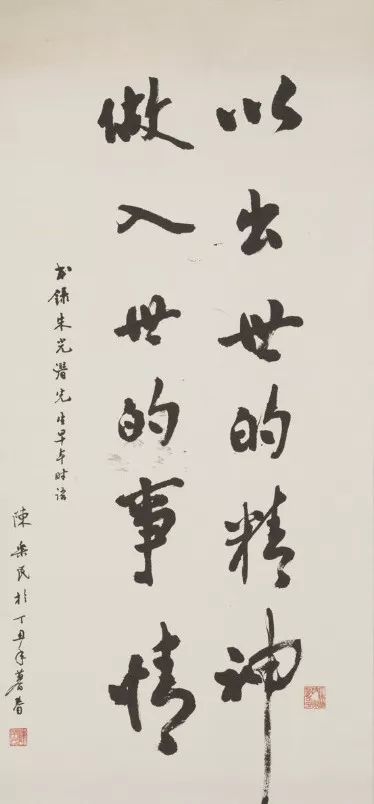 以出世的精神
做入世的事情
书录朱光潜先生早年时语
陳樂民於丁丑年暮春